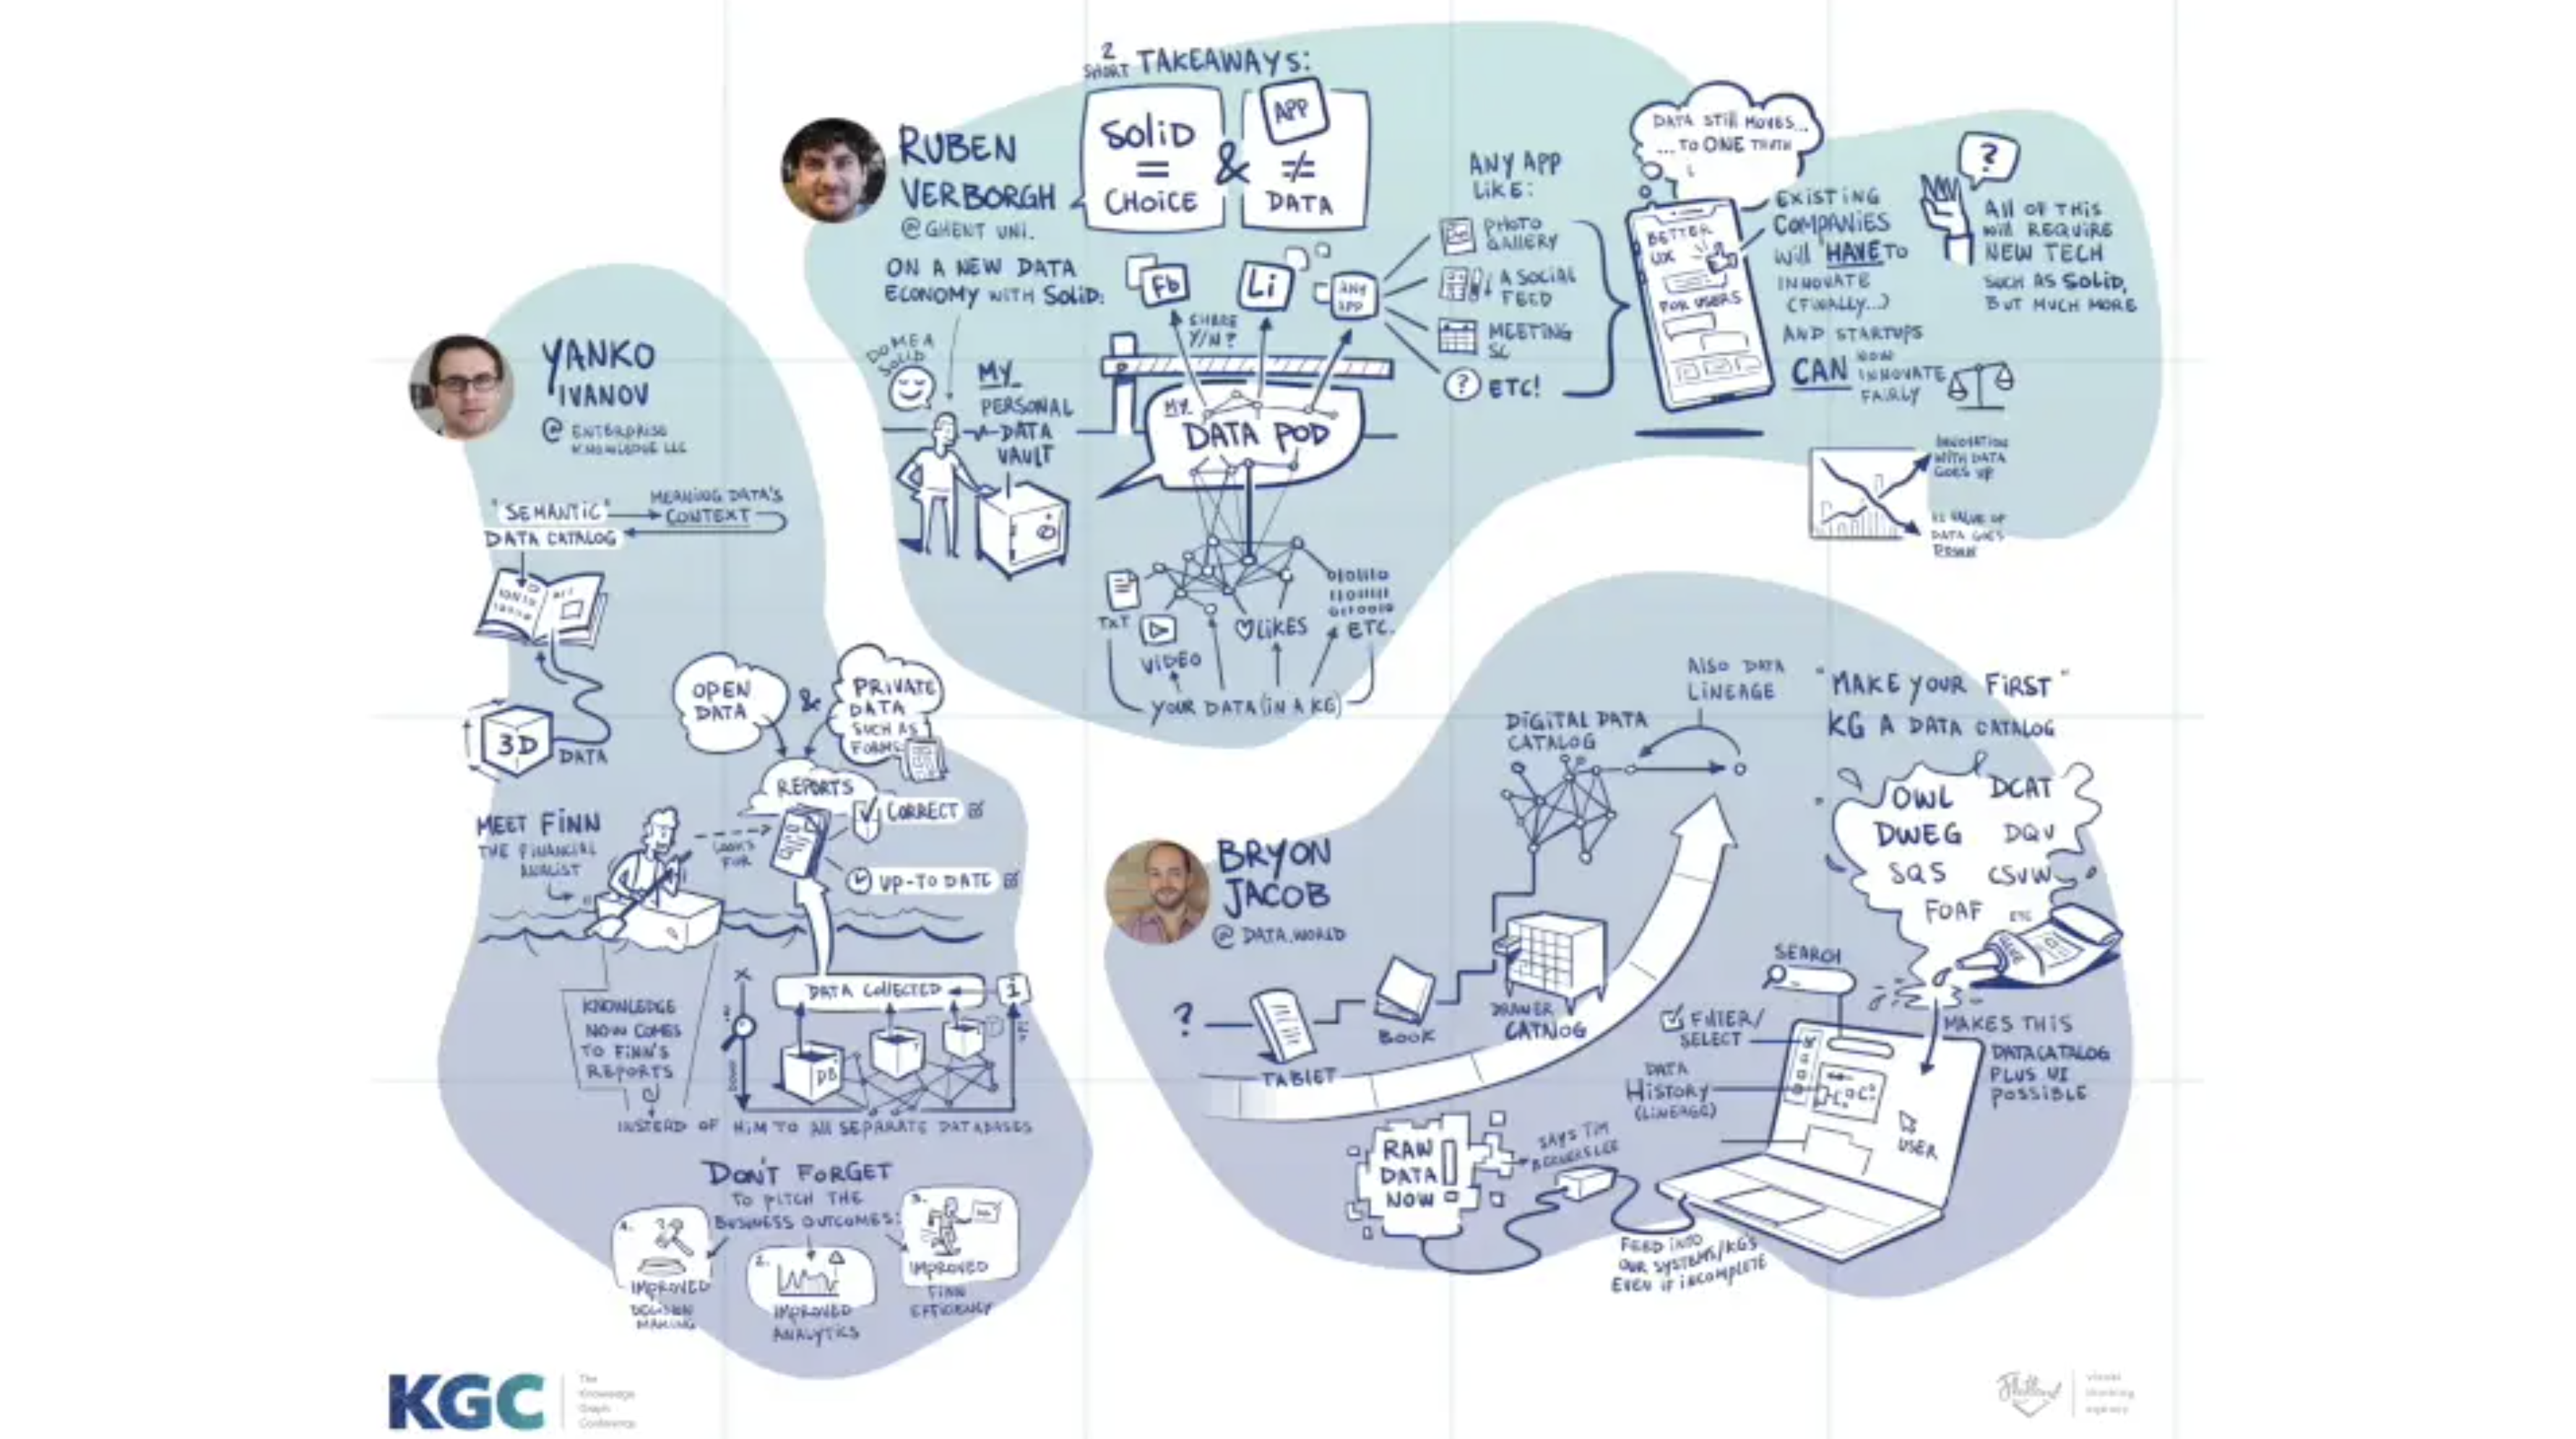 2
SHORT TAKEAWAYS:
SOLID
=
CHOICE
&
APP
≠
DATA
RUBEN
VERBORGH
@ GHENT UNI.
ON A NEW DATA
ECONOMY WITH SOLID:
DO ME A
SOLID
MY
PERSONAL
DATA
VAULT
Fb
Li
ANY
APP
SHARE
Y/N?
MY
DATA POD
TXT
VIDEO
LIKES
ETC.
YOUR DATA (IN A KG)
ANY APP
LIKE:
PHOTO
GALLERY
A SOCIAL
FEED
MEETING
SC
?
ETC!
DATA STILL MOVES...
...TO ONE TRUTH
BETTER
UX
FOR USERS
EXISTING
COMPANIES
WILL HAVE TO
INNOVATE
(FINALLY...)
AND STARTUPS
CAN NOW
INNOVATE
FAIRLY
?
ALL OF THIS
WILL REQUIRE
NEW TECH
SUCH AS SOLID,
BUT MUCH MORE
INNOVATION
WITH DATA
GOES UP
VALUE OF
DATA GOES
DOWN
YANKO
IVANOV
@ ENTERPRISE
KNOWLEDGE LLC
"SEMANTIC"
DATA CATALOG
MEANING DATA'S
CONTEXT
3D
DATA
OPEN
DATA
&
PRIVATE
DATA
SUCH AS
FORMS
REPORTS
CORRECT
UP-TO DATE
MEET FINN
THE FINANCIAL
ANALIST
LOOKS
FOR
KNOWLEDGE
NOW COMES
TO FINN'S
REPORTS
INSTEAD OF HIM TO ALL SEPARATE DATABASES
DATA COLLECTED
1
DB
DON'T FORGET
TO PITCH THE
BUSINESS OUTCOMES:
1.
IMPROVED
DECISION
MAKING
2.
IMPROVED
ANALYTICS
3.
IMPROVED
FINN
EFFICIENCY
BRYON
JACOB
@ DATA.WORLD
?
TABLET
BOOK
DRAWER
CATALOG
DIGITAL DATA
CATALOG
ALSO DATA
LINEAGE
"MAKE YOUR FIRST"
KG A DATA CATALOG
OWL DCAT
DWEG DQV
SQS CSVW
FOAF ETC
SEARCH
FILTER/
SELECT
DATA
HISTORY
(LINEAGE)
USER
MAKES THIS
DATACATALOG
PLUS UI
POSSIBLE
RAW
DATA
NOW!
SAYS TIM
BERNERS LEE
FEED INTO
OUR SYSTEMS/KG'S
EVEN IF INCOMPLETE
KGC
The
Knowledge
Graph
Conference
visual
thinking
agency